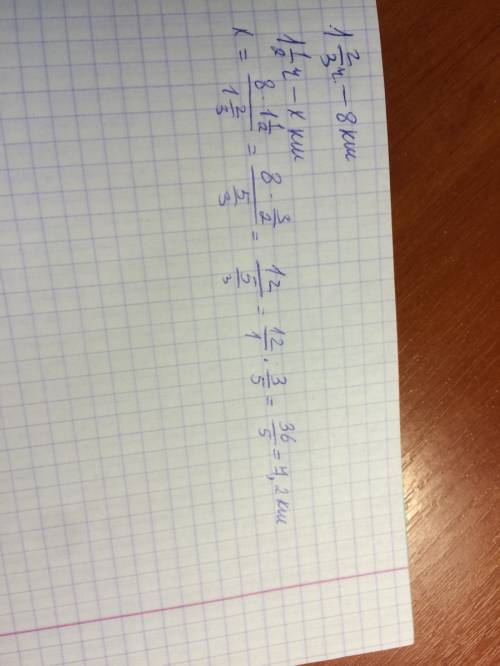 1 2/3 ч. – 8 км
1 1/2 ч – x км
x = (8 · 1 1/2)/(1 2/3) = (8 · 3/2)/(5/3) = 12/(5/3) = 12/1 · 3/5 = 36/5 = 7,2 км